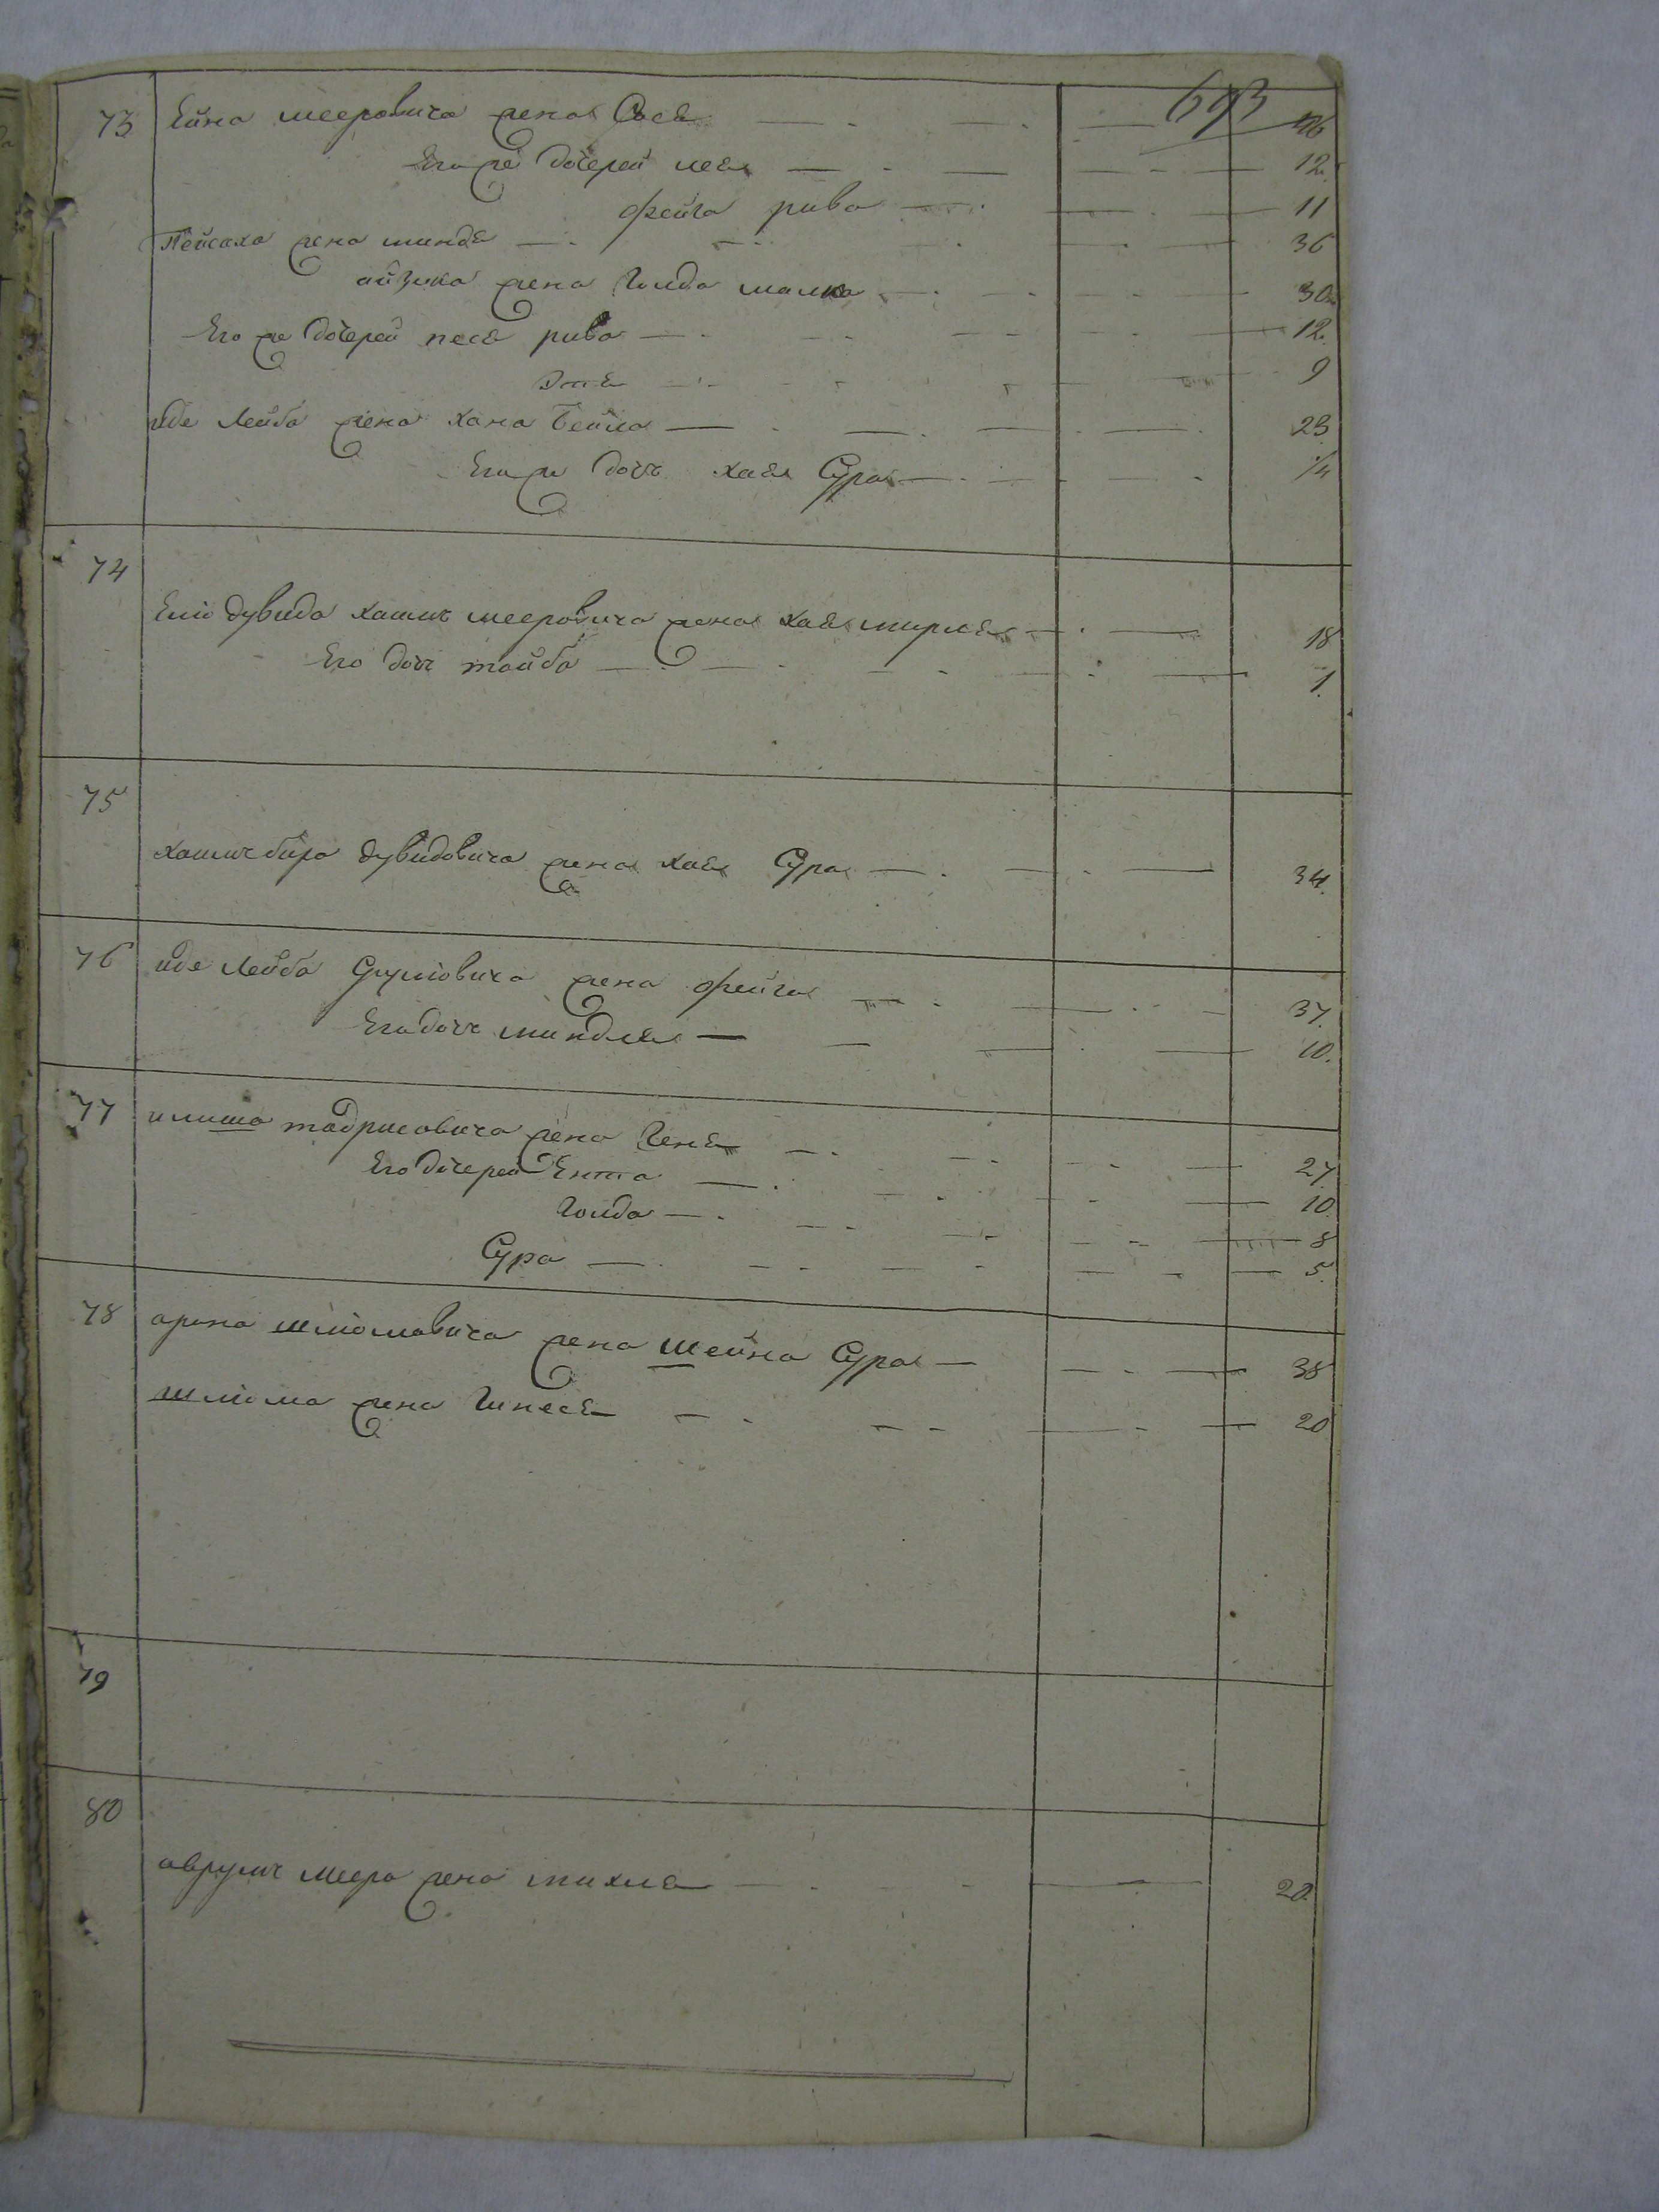 693
73 Ейна мееровича жена Сося 46
Его же дочерей лея 12.
фейга рива 11
Пейсаха жена минда 36
айзика жена Голда малка 30
Его же дочерей песя рива 12.
Этя 9
иде Лейба жена хана Бейла 23
Его же дочь хая Сура 1/4
74
Елiо дувида хаимъ мееровича жена хая мирля 18
Его дочь тайба 1.
75
хаимъ бира дувидовича жена хая Сура 34.
76 иде Лейба Срулiовича жена фейга 37.
Его дочь миндля 10.
77 илиша тадрисовича жена Геня 27
Его дочерей Ента 10
Голда 8
Сура 5.
78 арона шлiомовича жена шейна Сура 38
шлiома жена Гинеся 20
79
80
аврумъ меера жена михля 20.